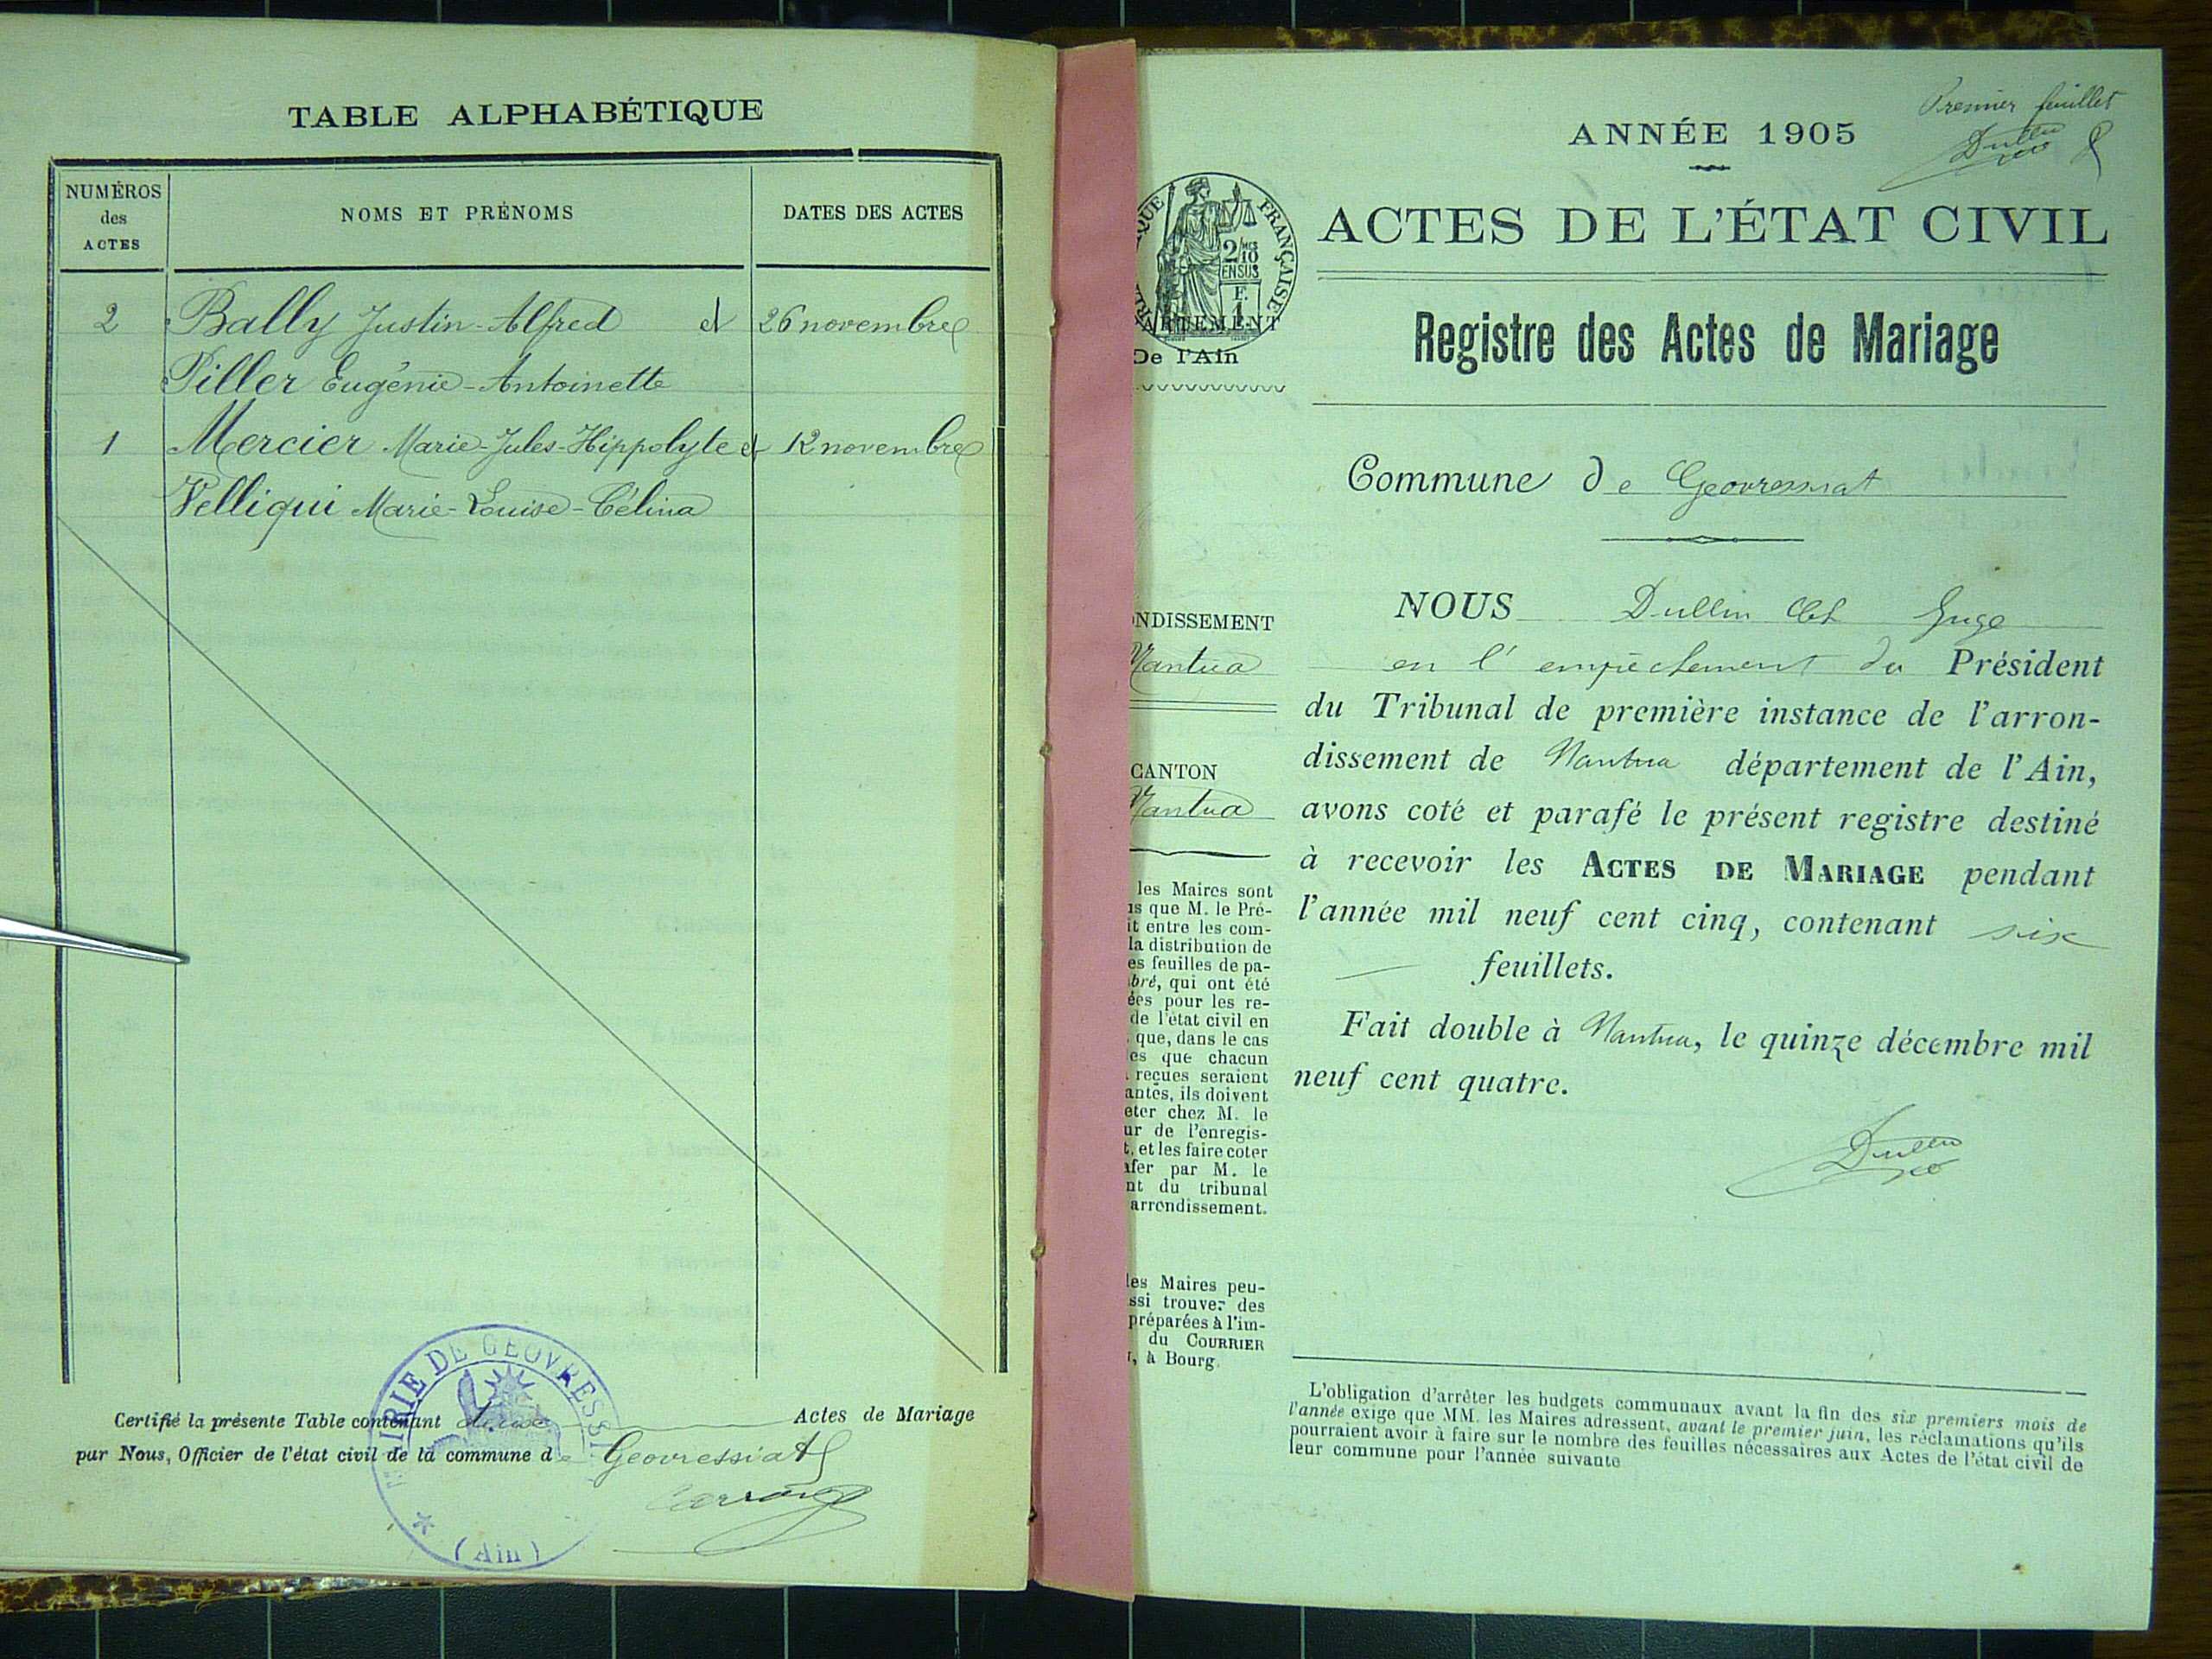 TABLE ALPHABÉTIQUE
NUMÉROS
des
ACTES
NOMS ET PRÉNOMS
DATES DES ACTES
2 Bally Justin-Alfred et 26 novembre
Piller Eugénie-Antoinette
1 Mercier Marie-Jules-Hippolyte et 12 novembre
Velliqui Marie-Louise-Célina
Certifié la présente Table contenant deux Actes de Mariage
par Nous, Officier de l'état civil de la commune de Geovressiat
IRIE DE GEOVRESSI
(Ain)
Premier feuillet
Dullin
ANNÉE 1905
ACTES DE L'ÉTAT CIVIL
QUE FRANÇAISE
2/10
EN SUS
F.
1
ARTEMENT
De l'Ain
Registre des Actes de Mariage
Commune de Geovressiat
NDISSEMENT
Nantua
CANTON
Nantua
les Maires sont
is que M. le Pré-
it entre les com-
la distribution de
es feuilles de pa-
bré, qui ont été
ées pour les re-
de l'état civil en
que, dans le cas
es que chacun
reçues seraient
antes, ils doivent
eter chez M. le
ur de l'enregis-
t, et les faire coter
afer par M. le
nt du tribunal
arrondissement.
les Maires peu-
ssi trouver des
préparées à l'im-
du COURRIER
à Bourg.
NOUS Dullin Juge
en l'empêchement du Président
du Tribunal de première instance de l'arron-
dissement de Nantua département de l'Ain,
avons coté et parafé le présent registre destiné
à recevoir les ACTES DE MARIAGE pendant
l'année mil neuf cent cinq, contenant six
feuillets.
Fait double à Nantua, le quinze décembre mil
neuf cent quatre.
Dullin
L'obligation d'arrêter les budgets communaux avant la fin des six premiers mois de
l'année exige que MM. les Maires adressent, avant le premier juin, les réclamations qu'ils
pourraient avoir à faire sur le nombre des feuilles nécessaires aux Actes de l'état civil de
leur commune pour l'année suivante